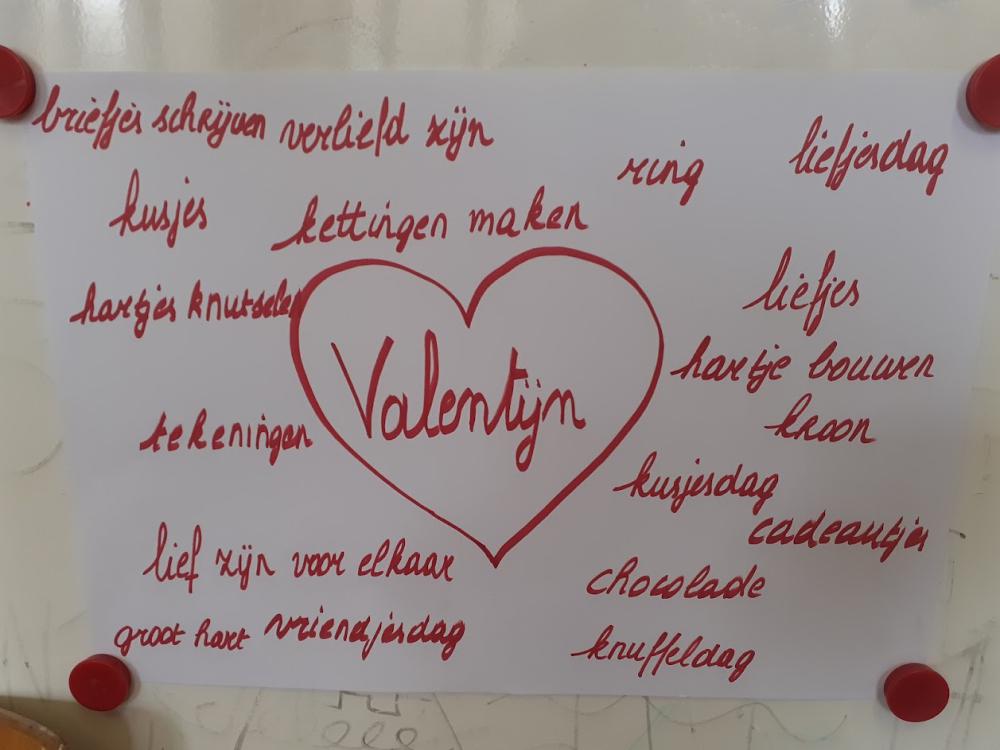 briefjes schrijven verliefd zijn
ring liefjesdag
kusjes kettingen maken
hartjes knutselen
liefjes
Valentijn
hartje bouwen
tekeningen
kroon
kusjesdag
cadeautjes
lief zijn voor elkaar
chocolade
groot hart vriendjesdag
knuffeldag